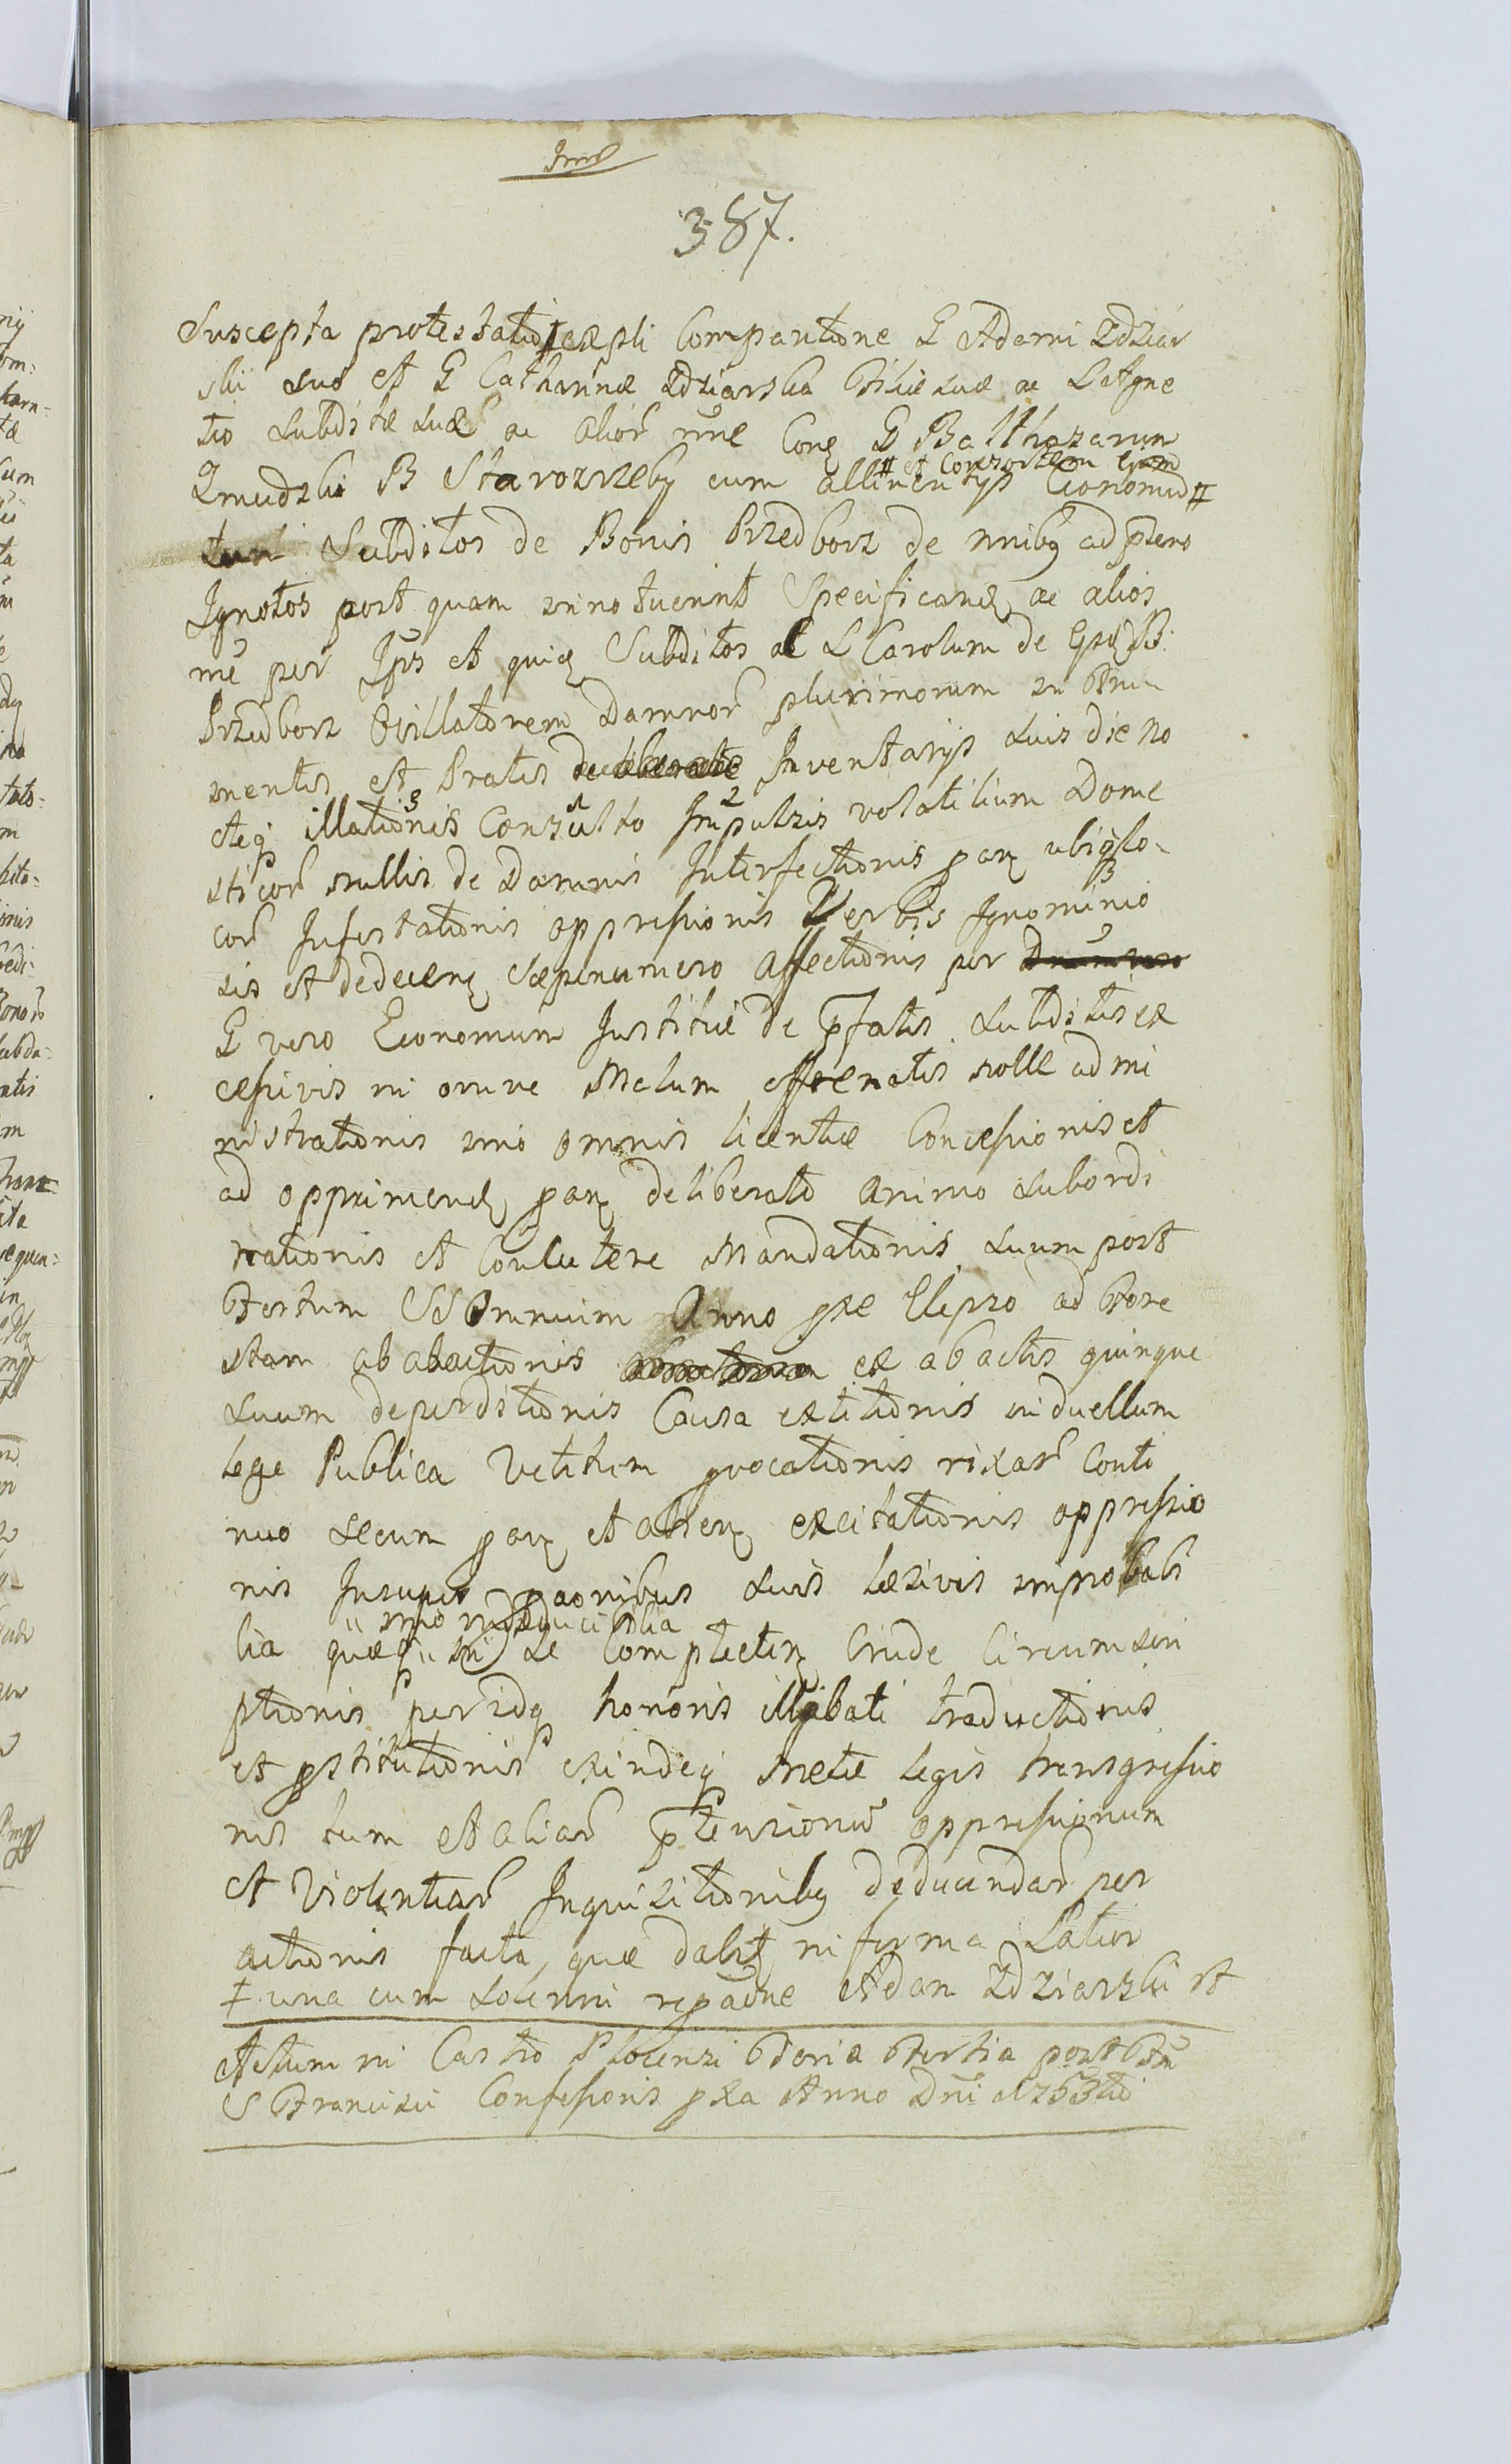 387.
Suscepta protestatio ‡ expli Comparitione G Adami Zdziar
skii suo et G Catharinæ Zdziarska Filiæ suæ ac L Agne
tis subditæ suæ ac alior nne Cong G Balthazarum
Zmudzki B Starozrzeby cum allinentys Economum #
# et Consortem Ejusd
tum Subditos de Bonis Przedborz de nnibq ad pſens
Ignotos post quam innotuerint Specificandq ac alios
me per Ipss et quiq Subditos ac L Carolum de Ejusd B.
Przedborz Ovillatorem Damnor plurimorum in Fru
mentis et Pratis Inventarys suis die no
cteq illationis 3 Consulto 1 Impulsis 2 volatilium Dome
sticor nullis de Damnis Interfectionis parq ubiqlo-
cor Infestationis oppreſsionis Verbis Ignominio
sis et dedecenq sæpenumero affectionis per
G vero Economum Justitiæ de pfatis subditis ex
ceſsivis in omne Malum effrenatis nolle admi
nistrationis imo omnis licentiæ Conceſsionis et
ad opprimendq parq deliberato animo subordi
nationis et Mandationis suum post
Festum SS Omnium Anno pxe Elapso ad Fore
stam ab abactionis ex abactis quinque
suum deperditionis Causa extitionis in duellum
lege Publica Vetitum provocationis rixar Conti
nuo secum parq et alienq excitationis oppreſsio
nis Insuper paonibus suis læsivis improbabi
lia quæq " in se Complectenq Crude Circumscri
" imo indeducibilia
ptionis peridq honoris illibati traductionis
et pstitutionis exindeq Metæ legis transgreſsio
nis tum et aliar ptensionu oppreſsionum
et Violentiar Inquisitionibq deducendar per
actionis facta, quæ dabitq in forma Latior
‡ una cum solenni repaone Adam Zdziarski et
Actum in Castro Plocensi Feria Tertia post Ftu
S Francisci Confeſsoris pxa Anno Dni 1763tio